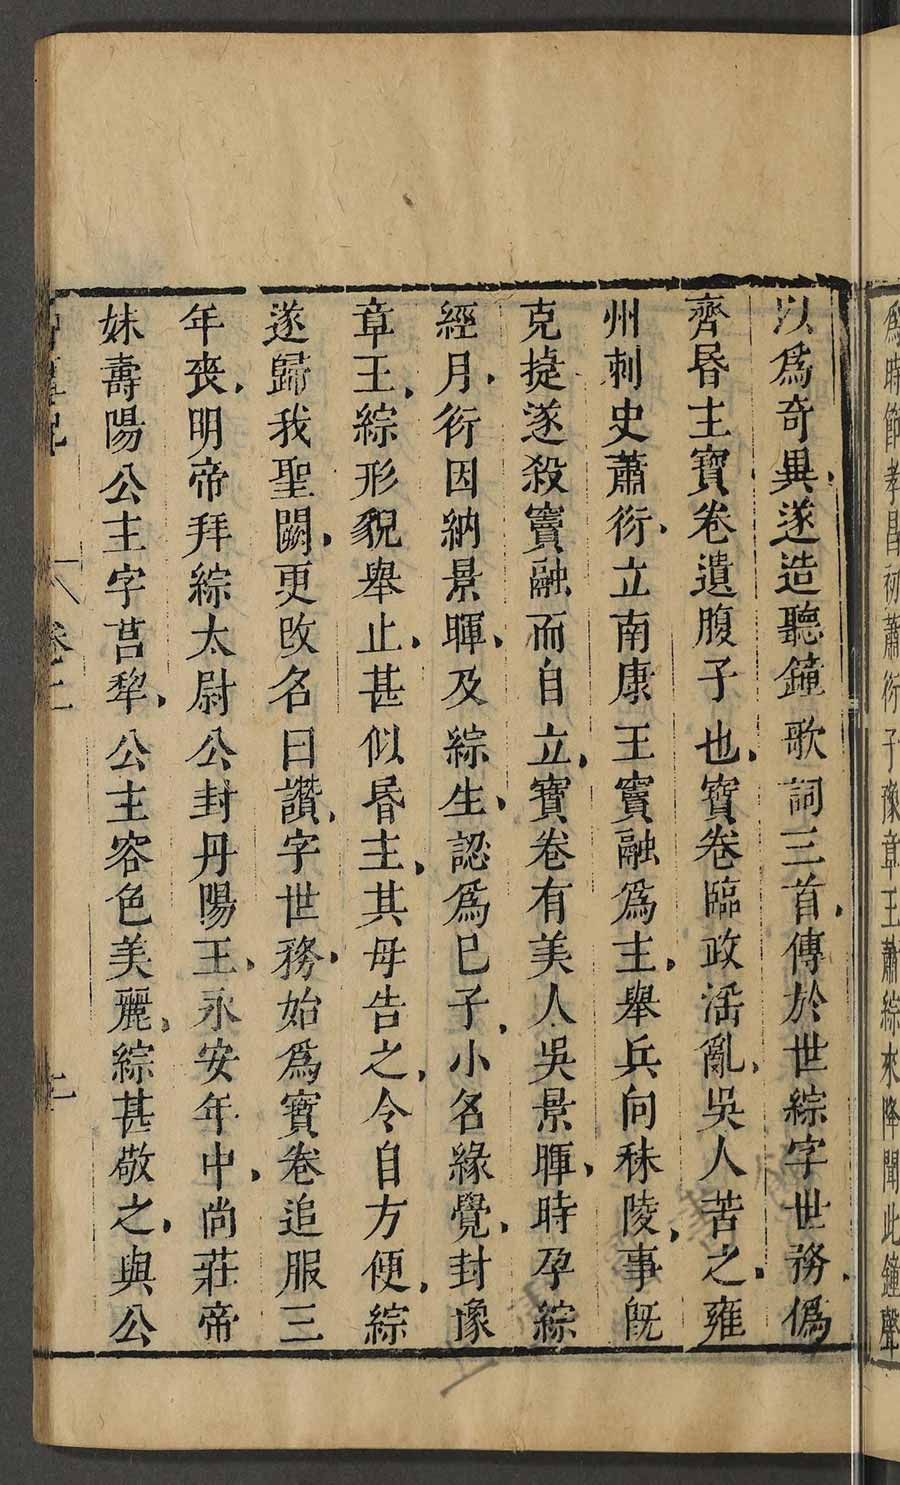 爲時節孝昌初蕭衍子豫章王蕭綜來降聞此鐘聲
以爲奇異遂造聽鐘歌詞三首傳於世綜字世務僞
齊昬主寶卷遺腹子也寶卷臨政淫亂吳人苦之雍
州刺史蕭衍立南康王寶融爲主舉兵向秣陵事旣
克捷遂殺寶融而自立寶卷有美人吳景暉時孕綜
經月衍因納景暉及綜生認爲已子小名緣覺封豫
章王綜形貌舉止甚似昬主其母告之令自方便綜
遂歸我聖闕更改名曰讚字世務始爲寶卷追服三
年喪明帝拜綜太尉公封丹陽王永安年中尚莊帝
妹壽陽公主字莒犂公主容色美麗綜甚敬之與公
卷二